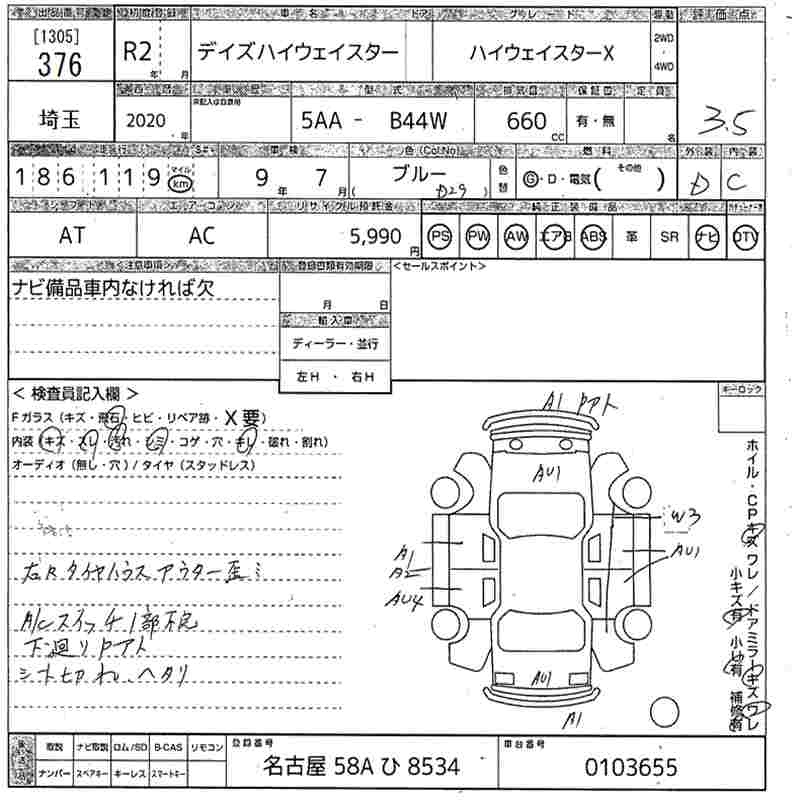 出品番号 初度登録 車名 ドア グレード 駆動 評価点
[1305]
376 R2 年 月 デイズハイウェイスター ハイウェイスターX 2WD・4WD
埼玉 2020.年 型式 排気量 保証書 定員
未記入は自家用
5AA - B44W 660 CC 有・無 名 3.5
走行 車検 色(Col.No) 燃料 外装 内装
186119 マイル km 9年 7月 ブルー (D29) 色替 G・D・電気(その他) D C
シフト エアーコン リサイクル預託金 純正装備品
AT AC 5,990円 PS PW AW エアB ABS 革 SR ナビ DTV
<注意事項> 登録書類有効期限 <セールスポイント>
ナビ備品車内なければ欠
月 日
輸入車
ディーラー・並行
左H・右H
< 検査員記入欄 > キーロック
Fガラス(キズ・飛石・ヒビ・リペア跡・X要)
内装(キズ・スレ・汚れ・シミ・コゲ・穴・キレ・破れ・割れ)
オーディオ(無し・穴)/タイヤ(スタッドレス)
右Rタイヤハウスアウター歪ミ
A/Cスイッチ1部不良
下廻りPアト
シート切れ、ヘタリ
A1 Pアト
AU1
W3
A1
AU1
A2
AU4
AU1
A1
ホイル・CPキズ ワレ/ドアミラーキズ ワレ
小キズ有 小凹有 補修有
取説 ナビ取説 ロム/SD B-CAS リモコン 登録番号 車台番号
ナンバー スペアキー キーレス スマートキー
名古屋 58A ひ 8534 0103655